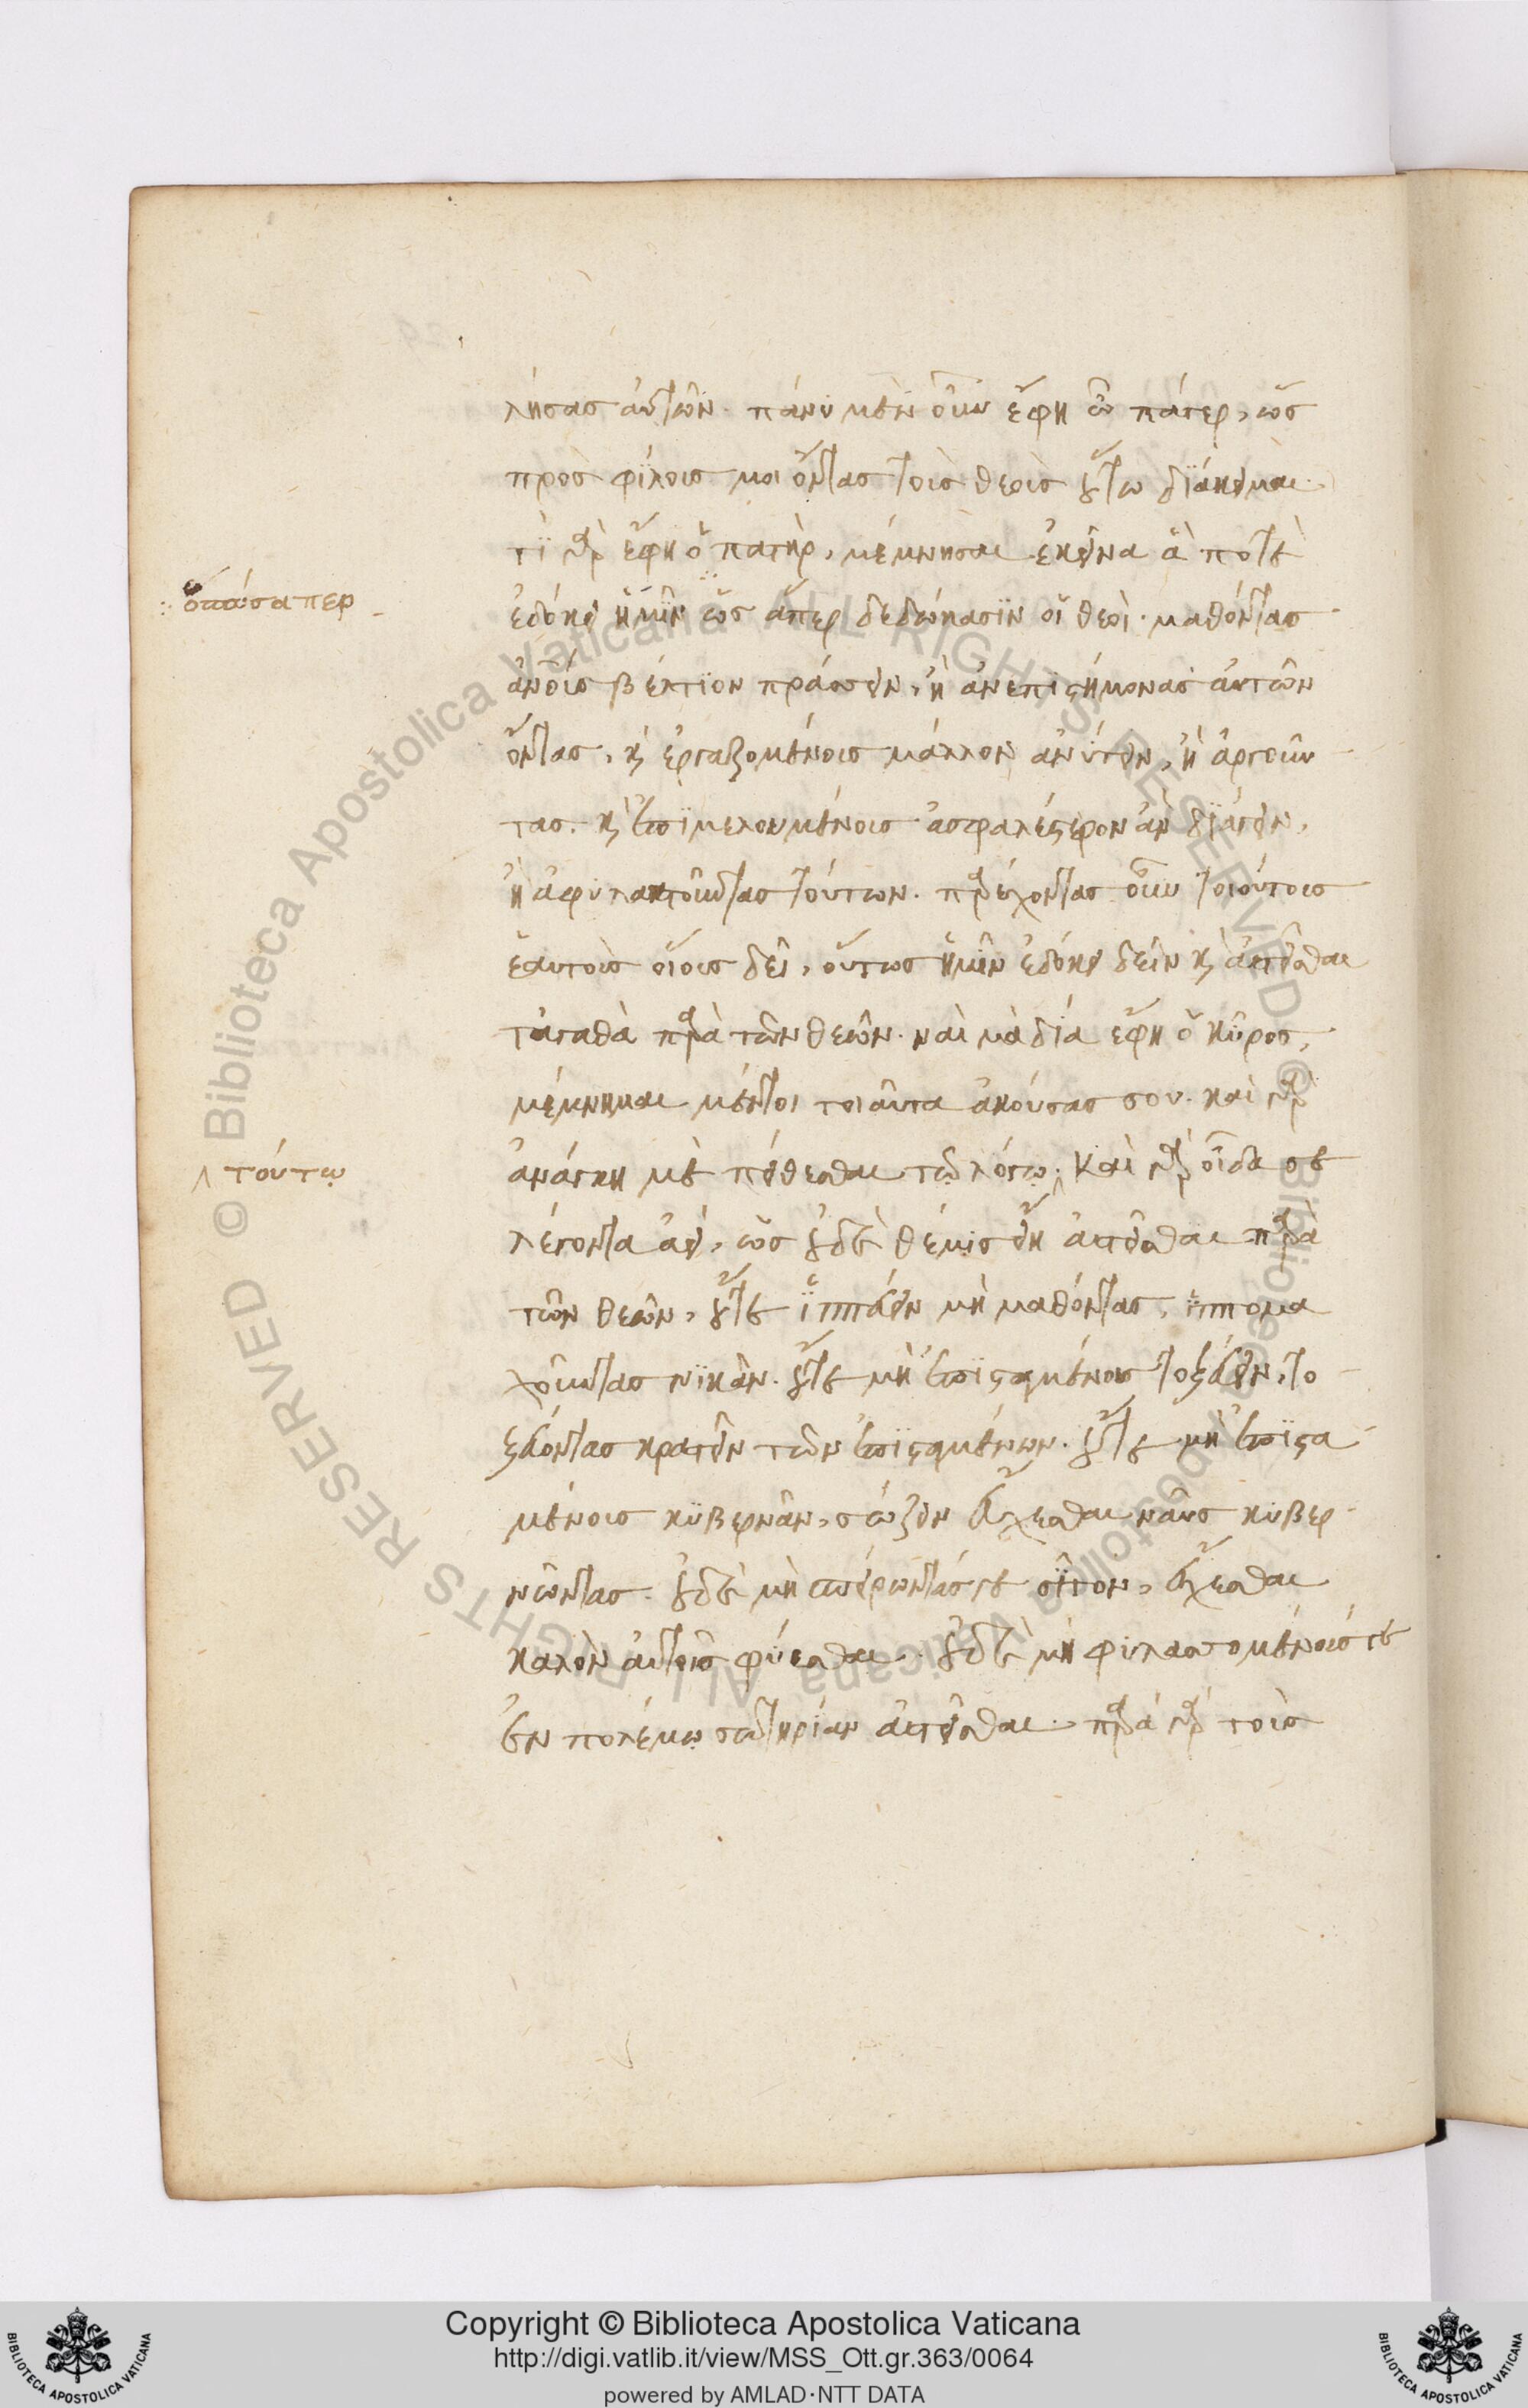 λήσας αὐτῶν. πάνυ μὲν οὖν ἔφη ὦ πάτερ, ὡς
πρὸς φίλους μοι ὄντας τοὺς θεοὺς οὕτω διάκειμαι.
τί γὰρ ἔφη ὁ πατὴρ, μέμνησαι ἐκεῖνα ἃ ποτὲ
ὁπόσαπερ
ἐδόκει ἡμῖν ὡς ἅπερ δεδώκασιν οἱ θεοὶ. μαθόντας
ἀνθ́ις βέλτιον πράσσειν, ἢ ἀνεπιστήμονας αὐτῶν
ὄντας, καὶ ἐργαζομένους μάλλον ἀνύτειν, ἢ ἀργοῦν
τας. καὶ ἐπιμελουμένους ἀσφαλέστερον ἂν διάγειν,
ἢ ἀφυλακτοῦντας τούτων. παρέχοντας οὖν τοιούτους
ἑαυτοὺς οἵους δεῖ, οὕτως ἡμῖν ἐδόκει δεῖν καὶ αἰτεῖσθαι
τἀγαθὰ παρὰ τῶν θεῶν. ναὶ μὰ δία ἔφη ὁ κῦρος,
μέμνημαι μέντοι τοιαῦτα ἀκούσας σου. καὶ γὰρ
ἀνάγκη με πείθεσθαι τῷ λόγῳ. καὶ γὰρ οἶδά σε
τούτῳ
λέγοντα ἀεὶ, ὡς οὐδὲ θέμις εἴη αἰτεῖσθαι παρὰ
τῶν θεῶν, οὔτε ἱππεύειν μὴ μαθόντας, ἱππομα
χοῦντας νικᾶν. οὔτε μὴ ἐπισταμένους τοξεύειν, το
ξεύοντας κρατεῖν τῶν ἐπισταμένων. οὔτε μὴ ἐπιστα
μένους κυβερνᾶν, σώζειν εὔχεσθαι ναῦς κυβερ
νῶντας. οὐδὲ μὴ σπείροντάς γε σῖτον, εὔχεσθαι
καλὸν αὐτοῖς φύεσθαι. οὐδὲ μὴ φυλασσομένους γε
ἐν πολέμῳ σωτηρίαν αἰτεῖσθαι. παρὰ γὰρ τοὺς
Copyright © Biblioteca Apostolica Vaticana
http://digi.vatlib.it/view/MSS_Ott.gr.363/0064
powered by AMLAD·NTT DATA